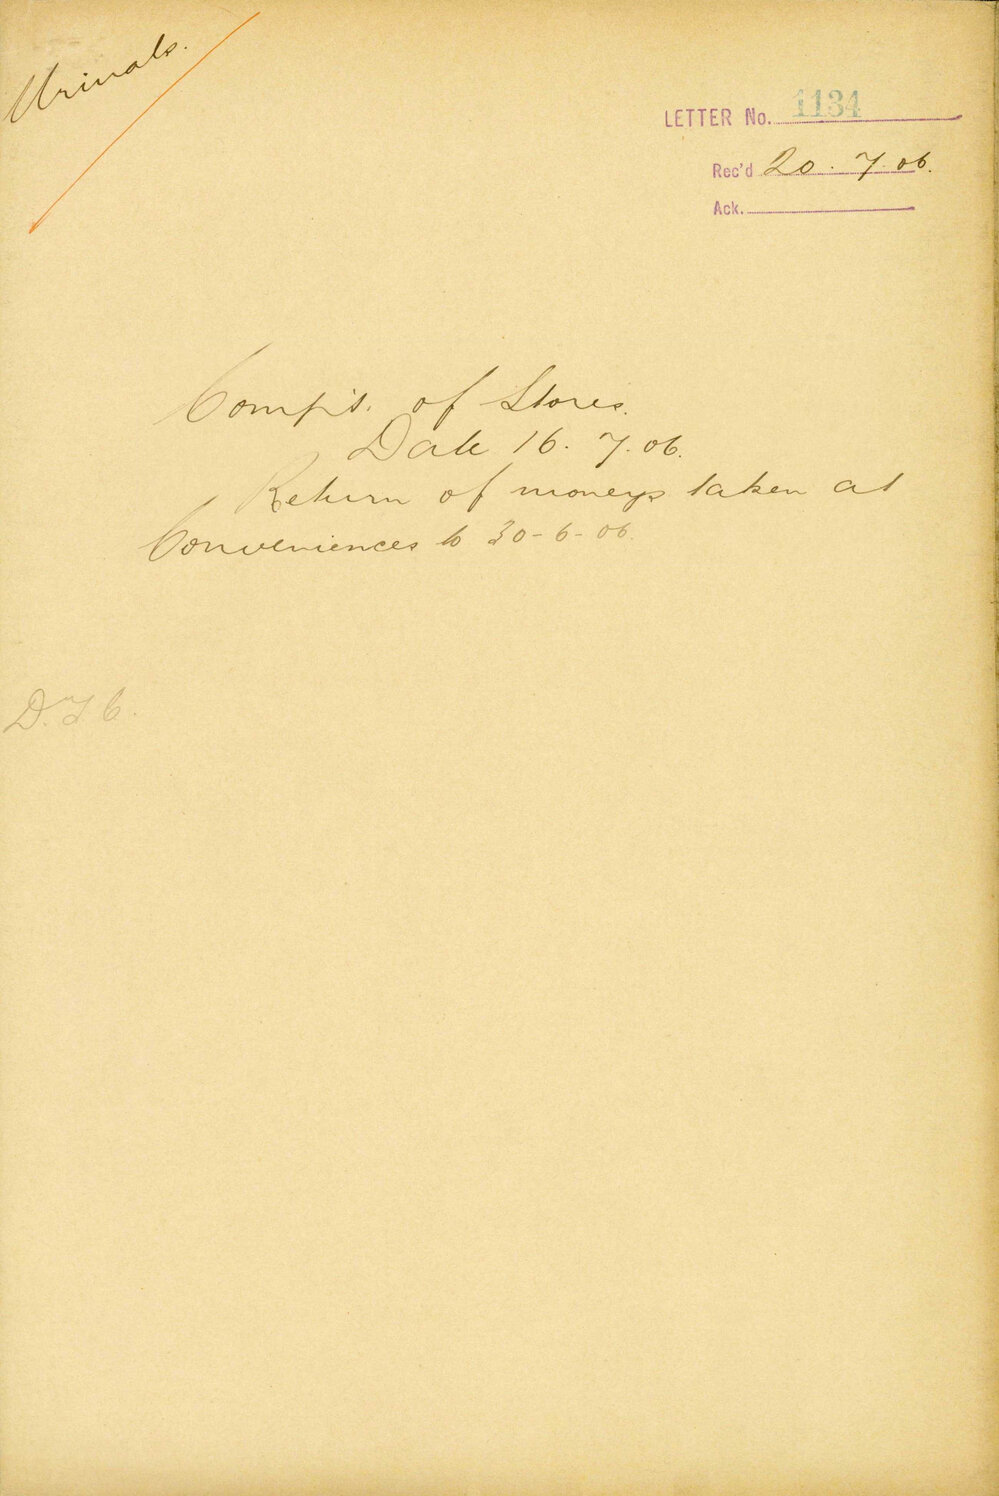 Urinals.
LETTER No. 1134
Rec'd 20. 7. 06.
Ack.
of Stores.
Date 16. 7. 06.
Return of moneys taken at
Conveniences to 30-6-06.